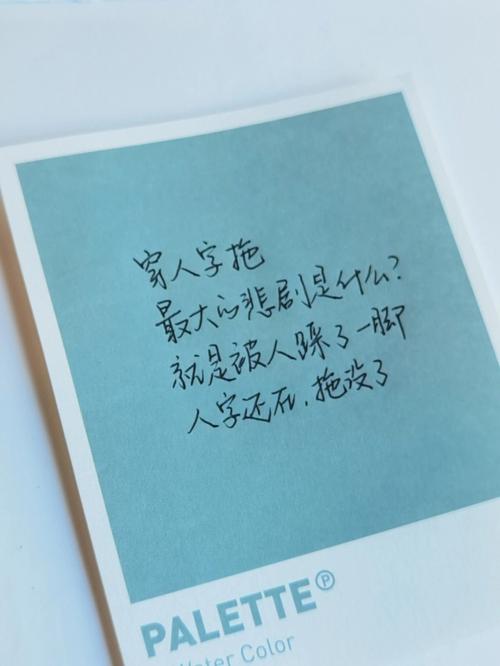 穿人字拖
最大的悲剧是什么?
就是被人踩了一脚
人字还在,拖没了
PALETTE®
Water Color